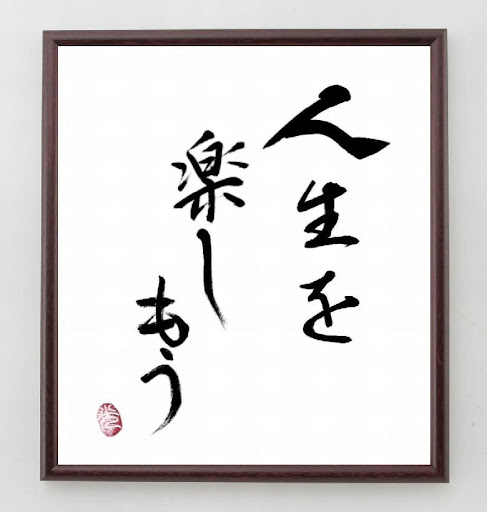 人生を
楽し
もう